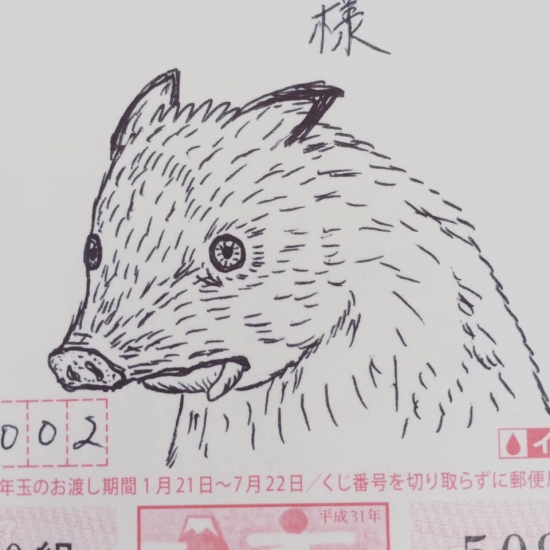 様
002
年玉のお渡し期間1月21日～7月22日／くじ番号を切り取らずに郵便
イ
平成31年
組
508